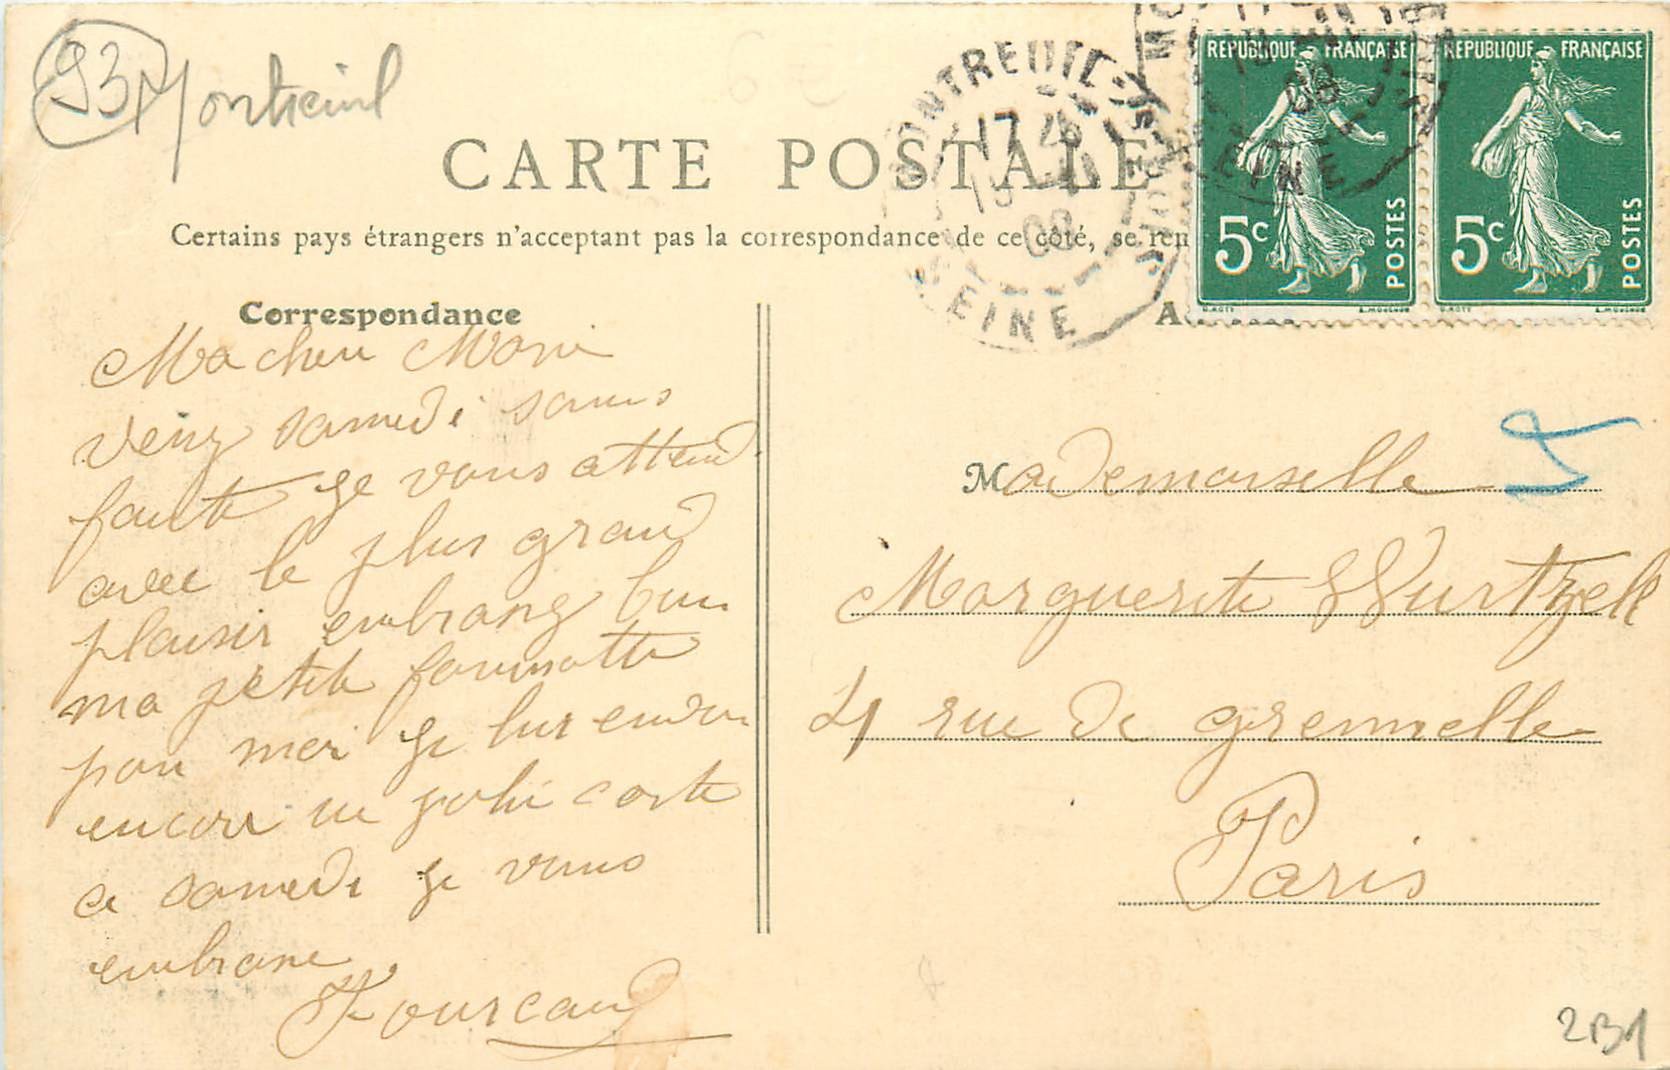 93 Montreuil
CARTE POSTALE
Certains pays étrangers n'acceptant pas la correspondance de ce côté, se ren
MONTREUIL
17
08
SEINE
REPUBLIQUE FRANÇAISE
5c
POSTES
REPUBLIQUE FRANÇAISE
5c
POSTES
08
SEINE
Correspondance
Ma cher
venz samedi sans
faute je vous attend
avec le plus grand
plaisir embrasez bien
ma petite
pour moi je lui
encore une jolie carte
a samedi je vous
embrasse
Fourcaud
Mademoiselle
Marguerite Wurtzell
41 rue de grennelle
Paris
2B1